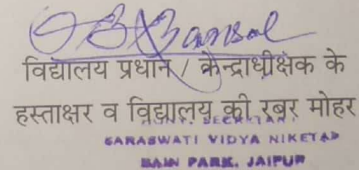 Bansal
विद्यालय प्रधान / केन्द्राधीक्षक के
हस्ताक्षर व विद्यालय की रबर मोहर
SECRETARY
SARASWATI VIDYA NIKETAN
BAIN PARK, JAIPUR